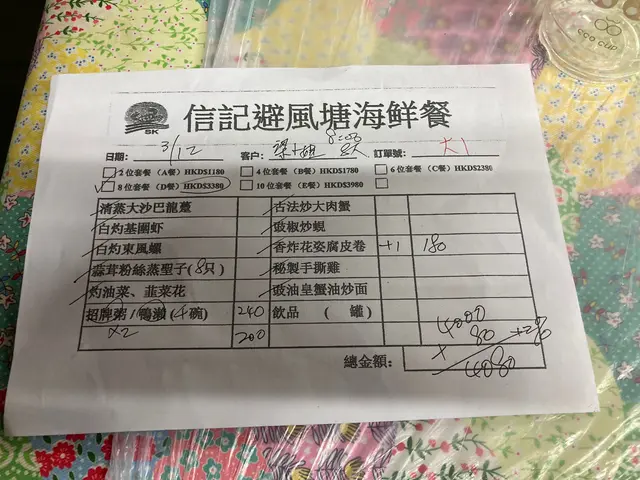 eco cup
SK
信記避風塘海鮮餐
日期: 3/12 客户: 梁小姐 8:00 8人 訂單號: 大1
2位套餐 (A餐) HKD$1180 4位套餐 (B餐) HKD$1780 6位套餐 (C餐) HKD$2380
8位套餐 (D餐) HKD$3380 10位套餐 (E餐) HKD$3980
清蒸大沙巴龍躉 古法炒大肉蟹
白灼基圍虾 豉椒炒蜆
白灼東風螺 香炸花姿腐皮卷 +1 180
蒜茸粉絲蒸聖子(8只) 秘製手撕雞
灼油菜、韮菜花 豉油皇蟹油炒面
招牌粥/鴨瀨(4碗) 240 飲品 ( 罐)
x2 200
4000
+ 80
總金額: 4080